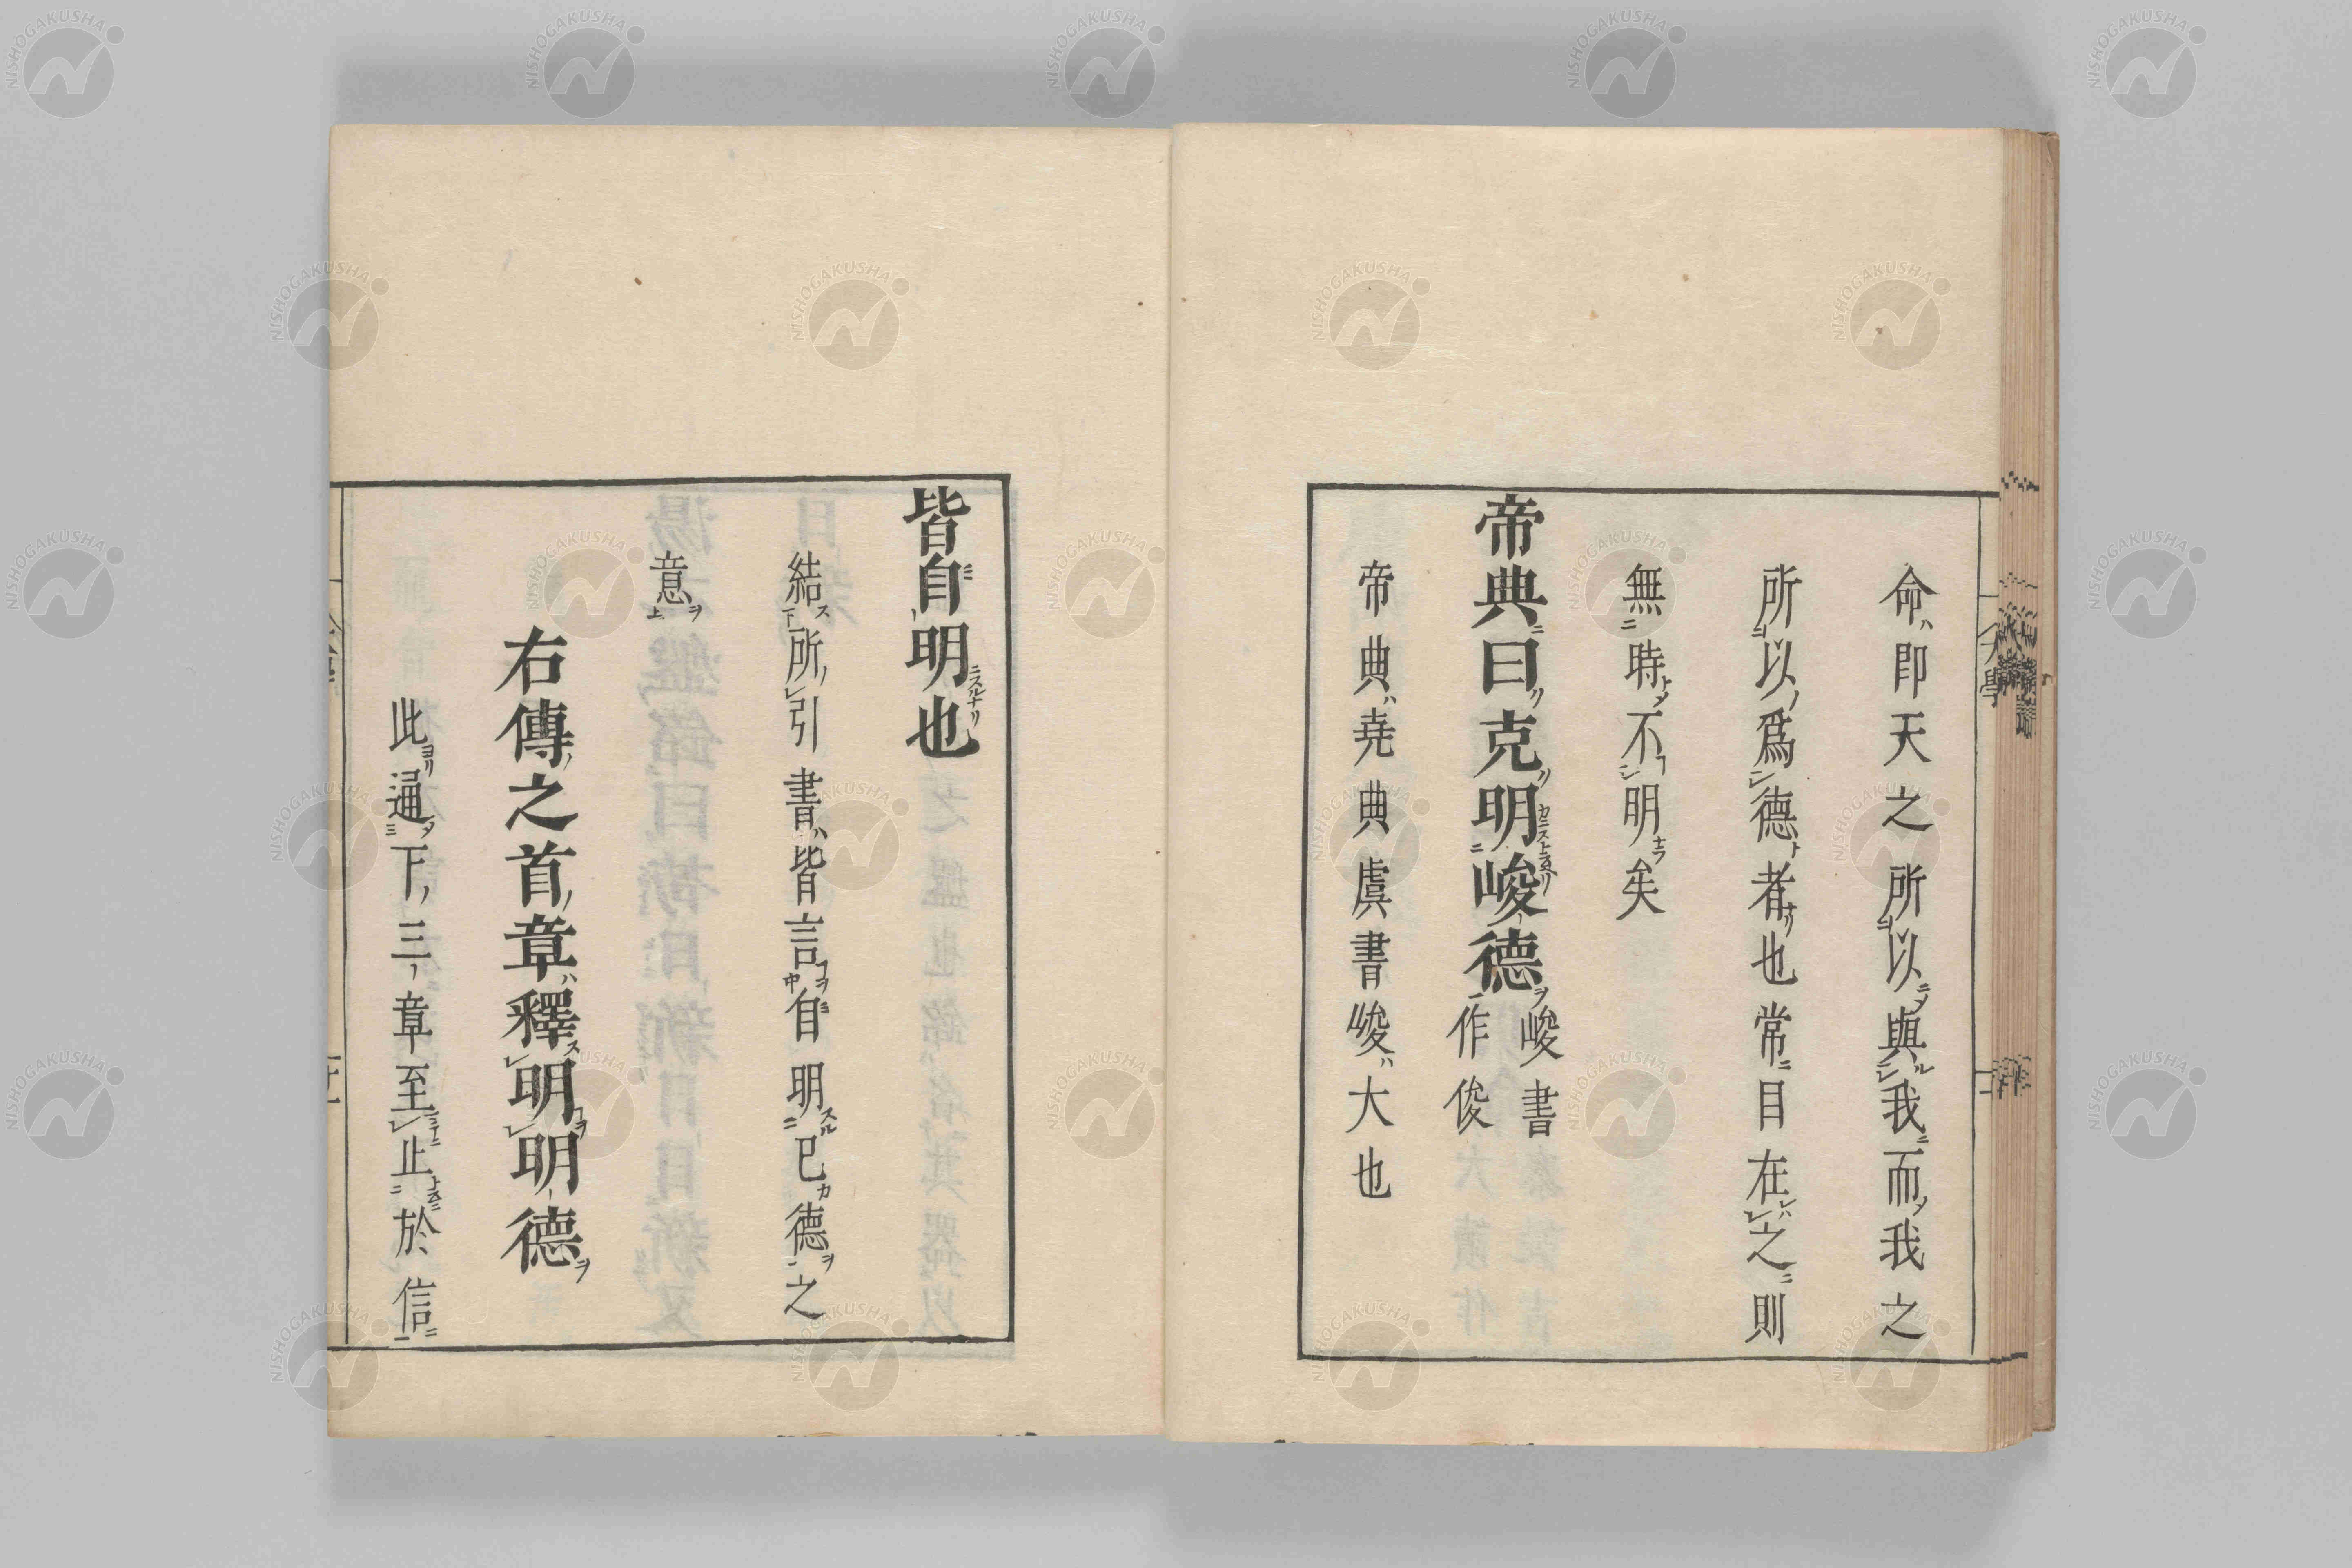 命即天之所以與我而我之
所以爲德者也常目在之則
無時不明矣
帝典曰克明峻德峻書
作俊
帝典堯典虞書峻大也
皆自明也
結所引書皆言自明已德之
意
右傳之首章釋明明德
此通下三章至止於信
大學
NISHOGAKUSHA